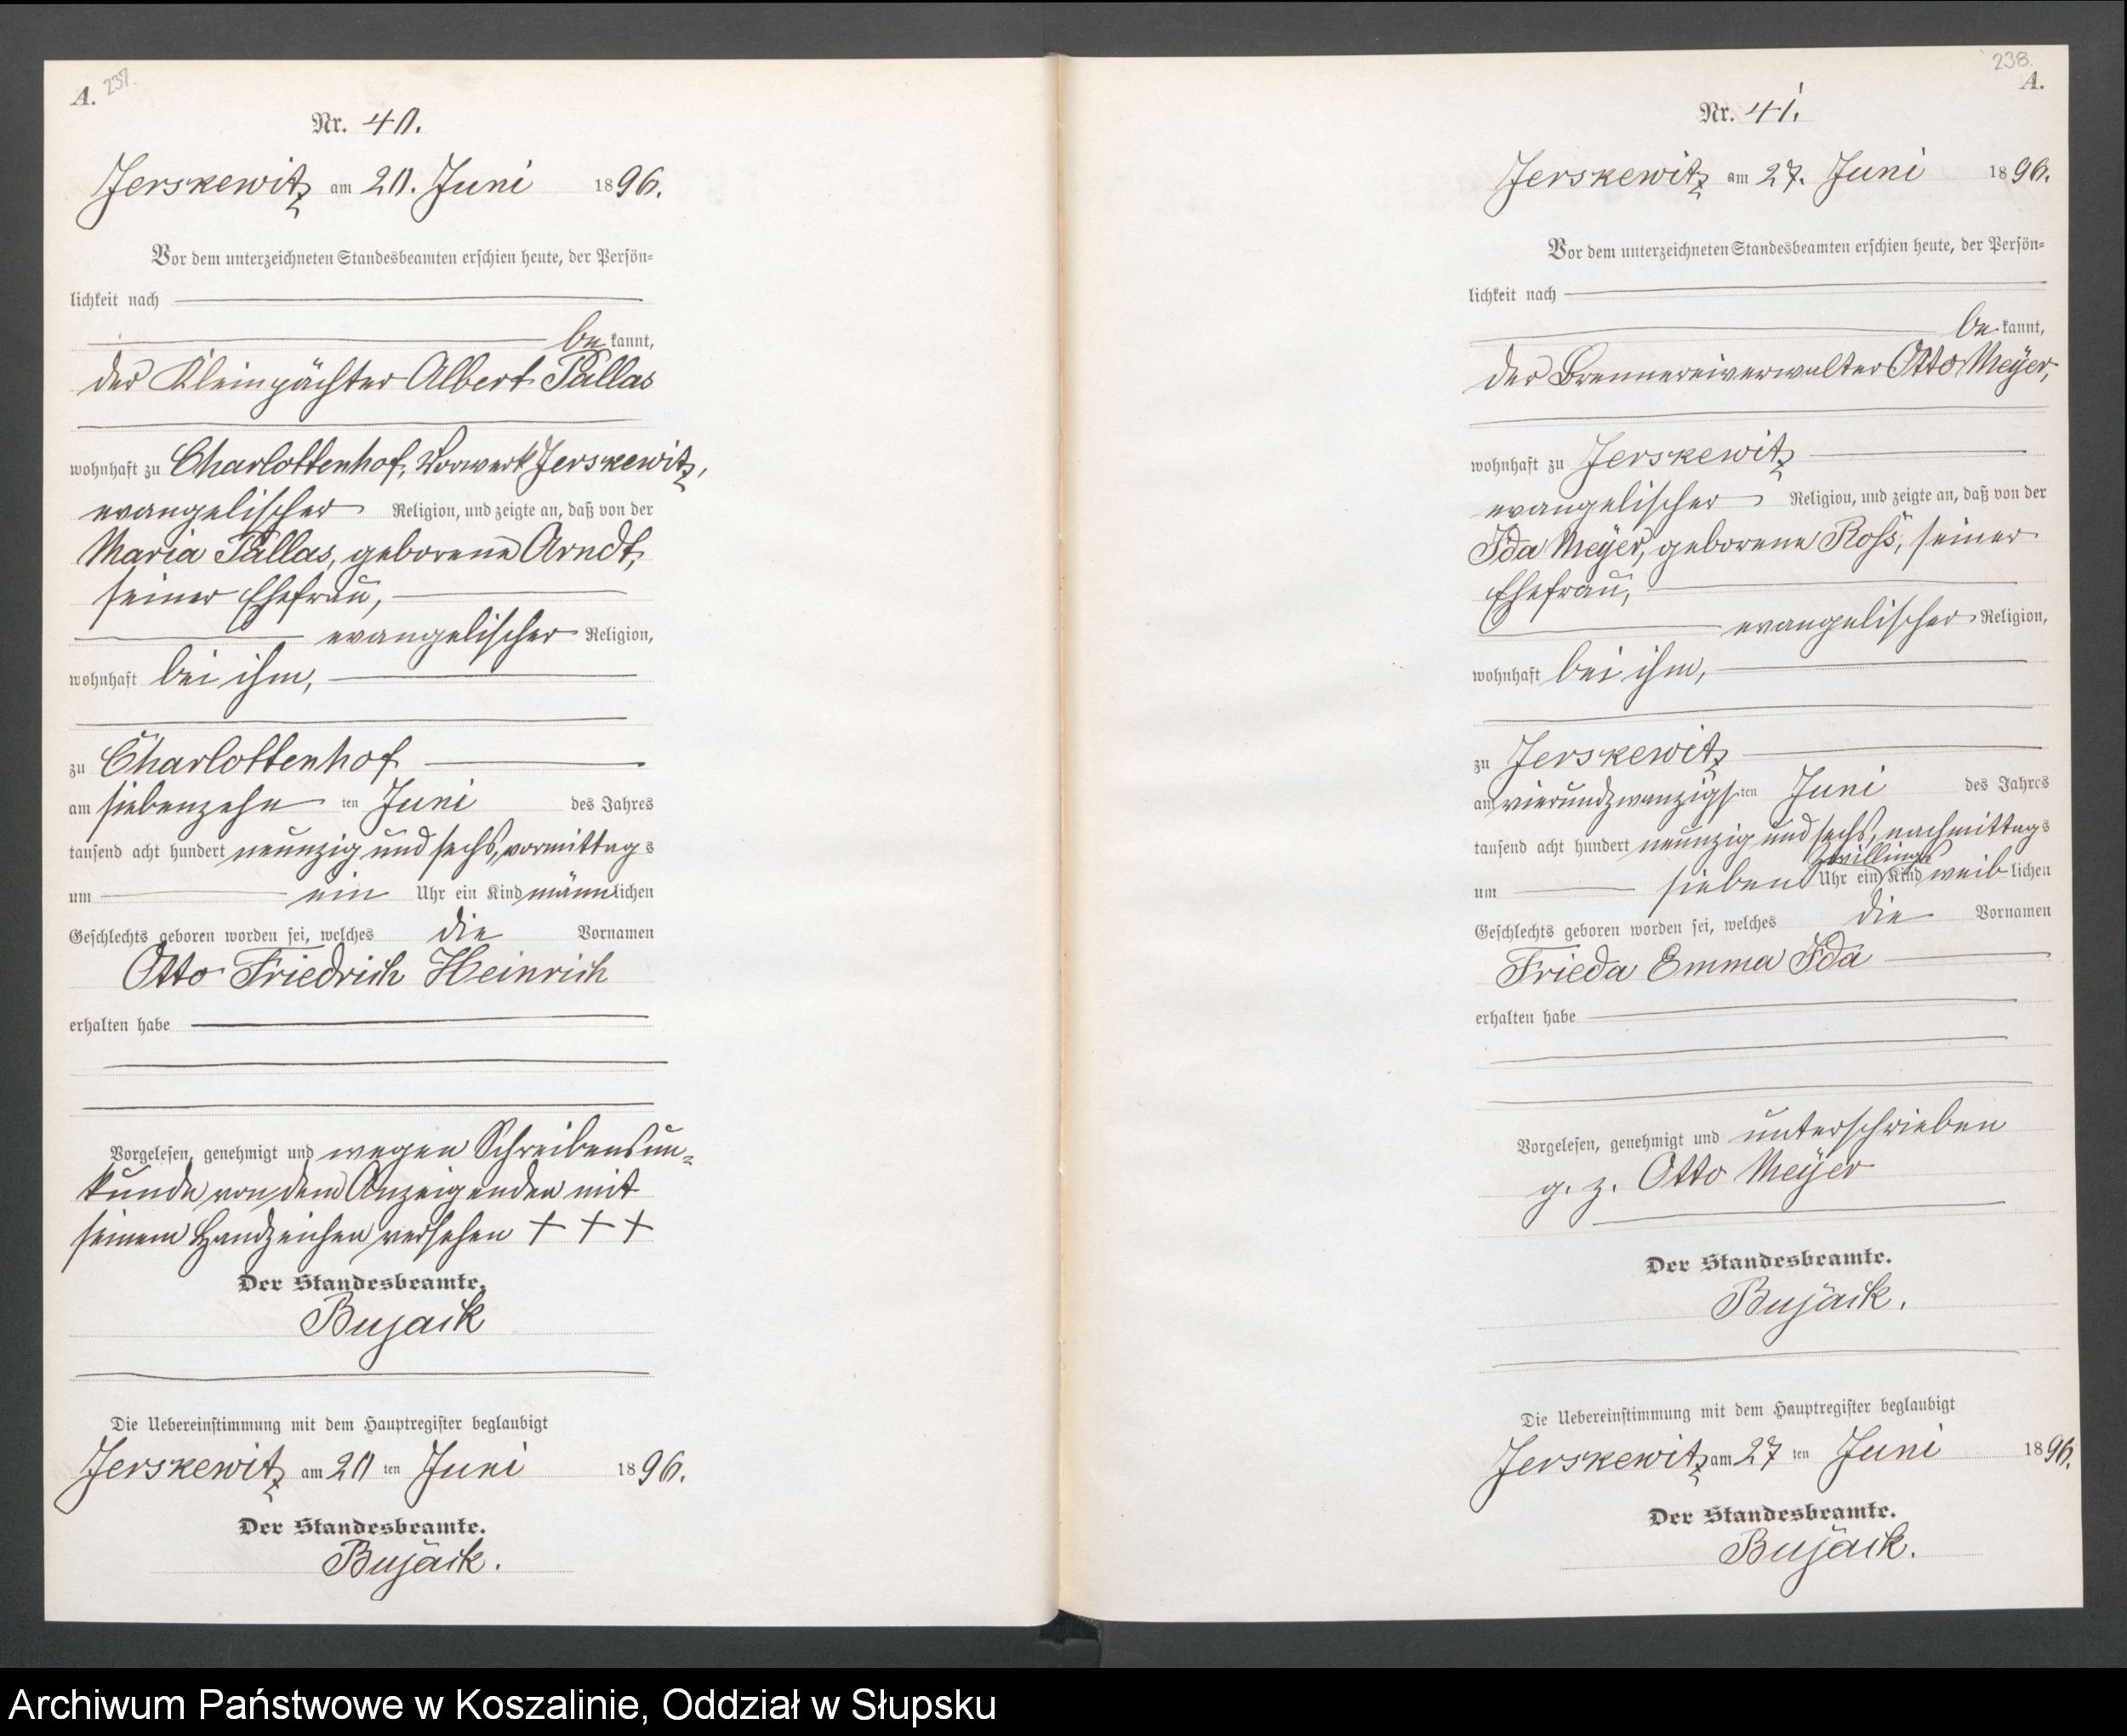 A. 237.
Nr. 40.
Jerskewitz am 20. Juni 1896.
Vor dem unterzeichneten Standesbeamten erschien heute, der Persön-
lichkeit nach
be kannt,
der Kleinpächter Albert Pallas
wohnhaft zu Charlottenhof, Vorwerk Jerskewitz,
evangelischer Religion, und zeigte an, daß von der
Maria Pallas, geborene Arndt,
seiner Ehefrau,
evangelischer Religion,
wohnhaft bei ihm,
zu Charlottenhof
am siebenzehn ten Juni des Jahres
tausend acht hundert neunzig und sechs, vormittag s
um ein Uhr ein Kind männ lichen
Geschlechts geboren worden sei, welches die Vornamen
Otto Friedrich Heinrich
erhalten habe
Vorgelesen, genehmigt und wegen Schreibensun-
kunde von dem Anzeigenden mit
seinem Handzeichen versehen + + +
Der Standesbeamte.
Bujack
Die Uebereinstimmung mit dem Hauptregister beglaubigt
Jerskewitz am 20 ten Juni 1896.
Der Standesbeamte.
Bujack.
238.
A.
Nr. 41.
Jerskewitz am 27. Juni 1896.
Vor dem unterzeichneten Standesbeamten erschien heute, der Persön-
lichkeit nach
be kannt,
der Brennereiverwalter Otto Meyer,
wohnhaft zu Jerskewitz
evangelischer Religion, und zeigte an, daß von der
Ida Meyer, geborene Roß, seiner
Ehefrau,
evangelischer Religion,
wohnhaft bei ihm,
zu Jerskewitz
am vierundzwanzigs ten Juni des Jahres
tausend acht hundert neunzig und sechs, nachmittag s
Zwillings
um sieben Uhr ein Kind weib lichen
Geschlechts geboren worden sei, welches die Vornamen
Frieda Emma Ida
erhalten habe
Vorgelesen, genehmigt und unterschrieben
g. z. Otto Meyer
Der Standesbeamte.
Bujack.
Die Uebereinstimmung mit dem Hauptregister beglaubigt
Jerskewitz am 27 ten Juni 1896.
Der Standesbeamte.
Bujack.
Archiwum Państwowe w Koszalinie, Oddział w Słupsku